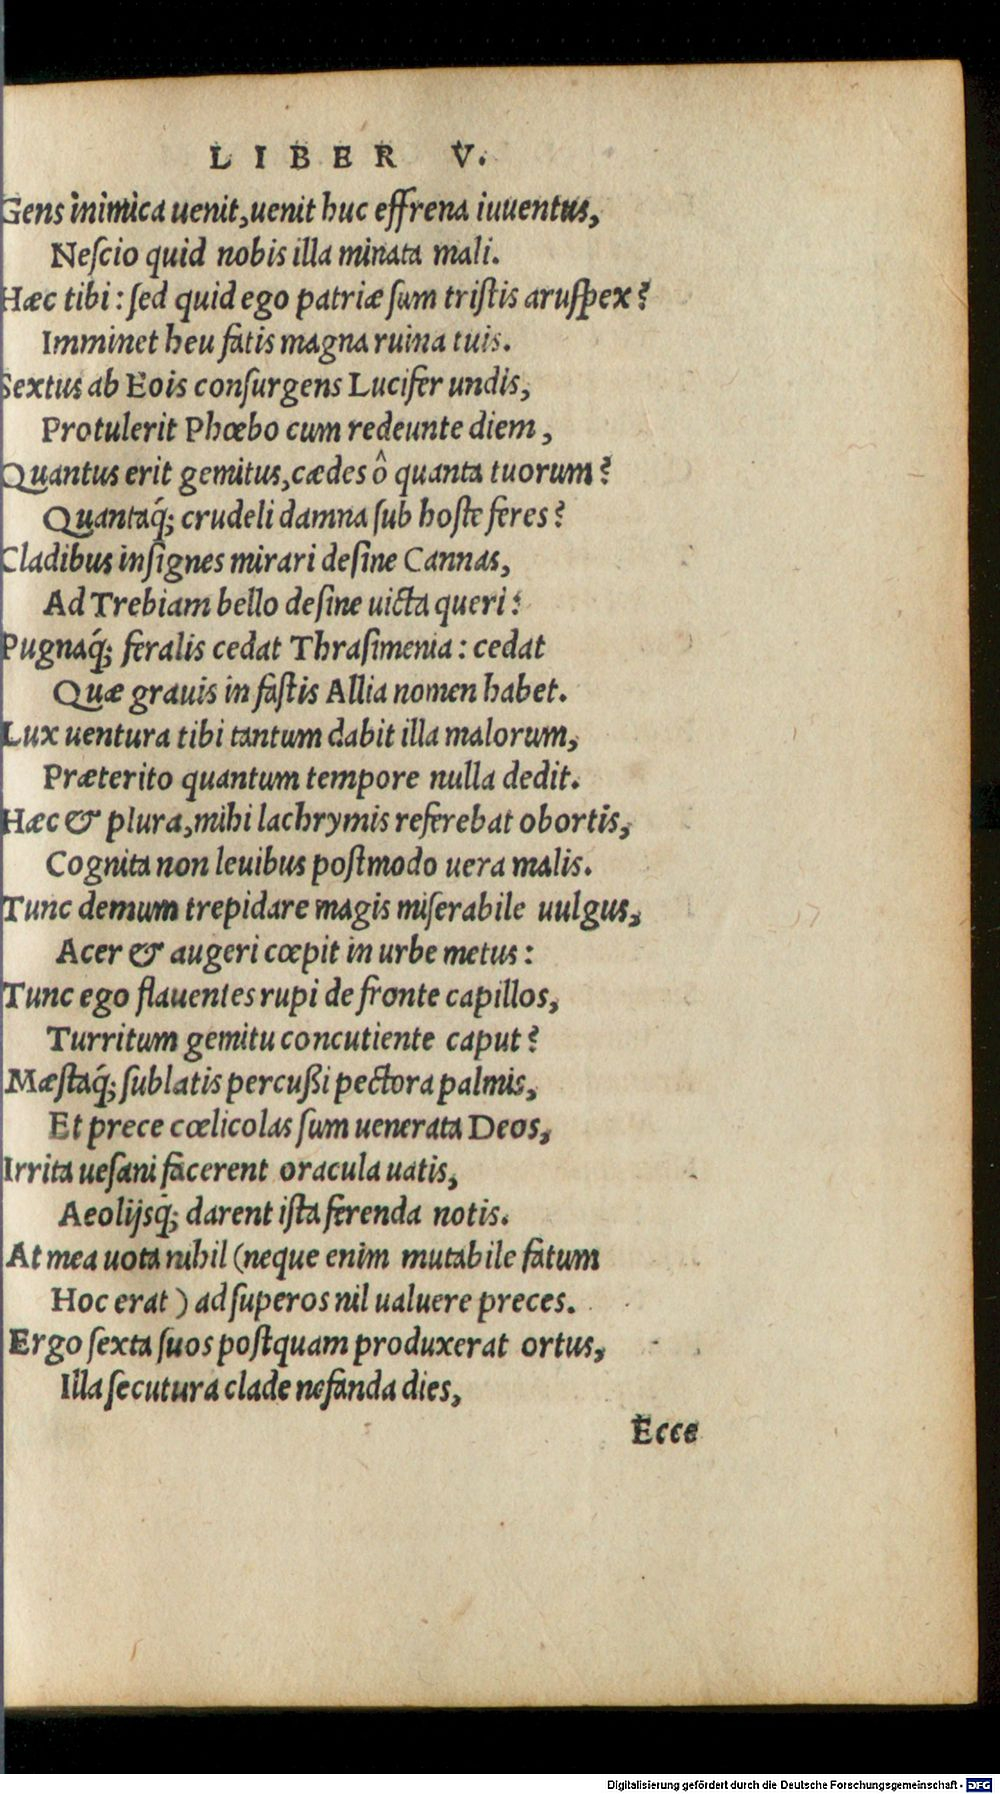 LIBER V.
Gens inimica uenit, uenit huc effrena iuuentus,
Neſcio quid nobis illa minata mali.
Hæc tibi: ſed quid ego patriæ ſum triſtis aruſpex?
Imminet heu fatis magna ruina tuis.
Sextus ab Eois conſurgens Lucifer undis,
Protulerit Phœbo cum redeunte diem,
Quantus erit gemitus, cædes ô quanta tuorum?
Quantaq́; crudeli damna ſub hoſte feres?
Cladibus inſignes mirari deſine Cannas,
Ad Trebiam bello deſine uicta queri:
Pugnaq́; feralis cedat Thraſimenia: cedat
Quæ grauis in faſtis Allia nomen habet.
Lux uentura tibi tantum dabit illa malorum,
Præterito quantum tempore nulla dedit.
Hæc & plura, mihi lachrymis referebat obortis,
Cognita non leuibus poſtmodo uera malis.
Tunc demum trepidare magis miſerabile uulgus,
Acer & augeri cœpit in urbe metus:
Tunc ego flauentes rupi de fronte capillos,
Turritum gemitu concutiente caput?
Mæſtaq́; ſublatis percußi pectora palmis,
Et prece cœlicolas ſum uenerata Deos,
Irrita ueſani facerent oracula uatis,
Aeolijsq́; darent iſta ferenda notis.
At mea uota nihil (neque enim mutabile fatum
Hoc erat) ad ſuperos nil ualuere preces.
Ergo ſexta ſuos poſtquam produxerat ortus,
Illa ſecutura clade nefanda dies,
Ecce
Digitalisierung gefördert durch die Deutsche Forschungsgemeinschaft - DFG